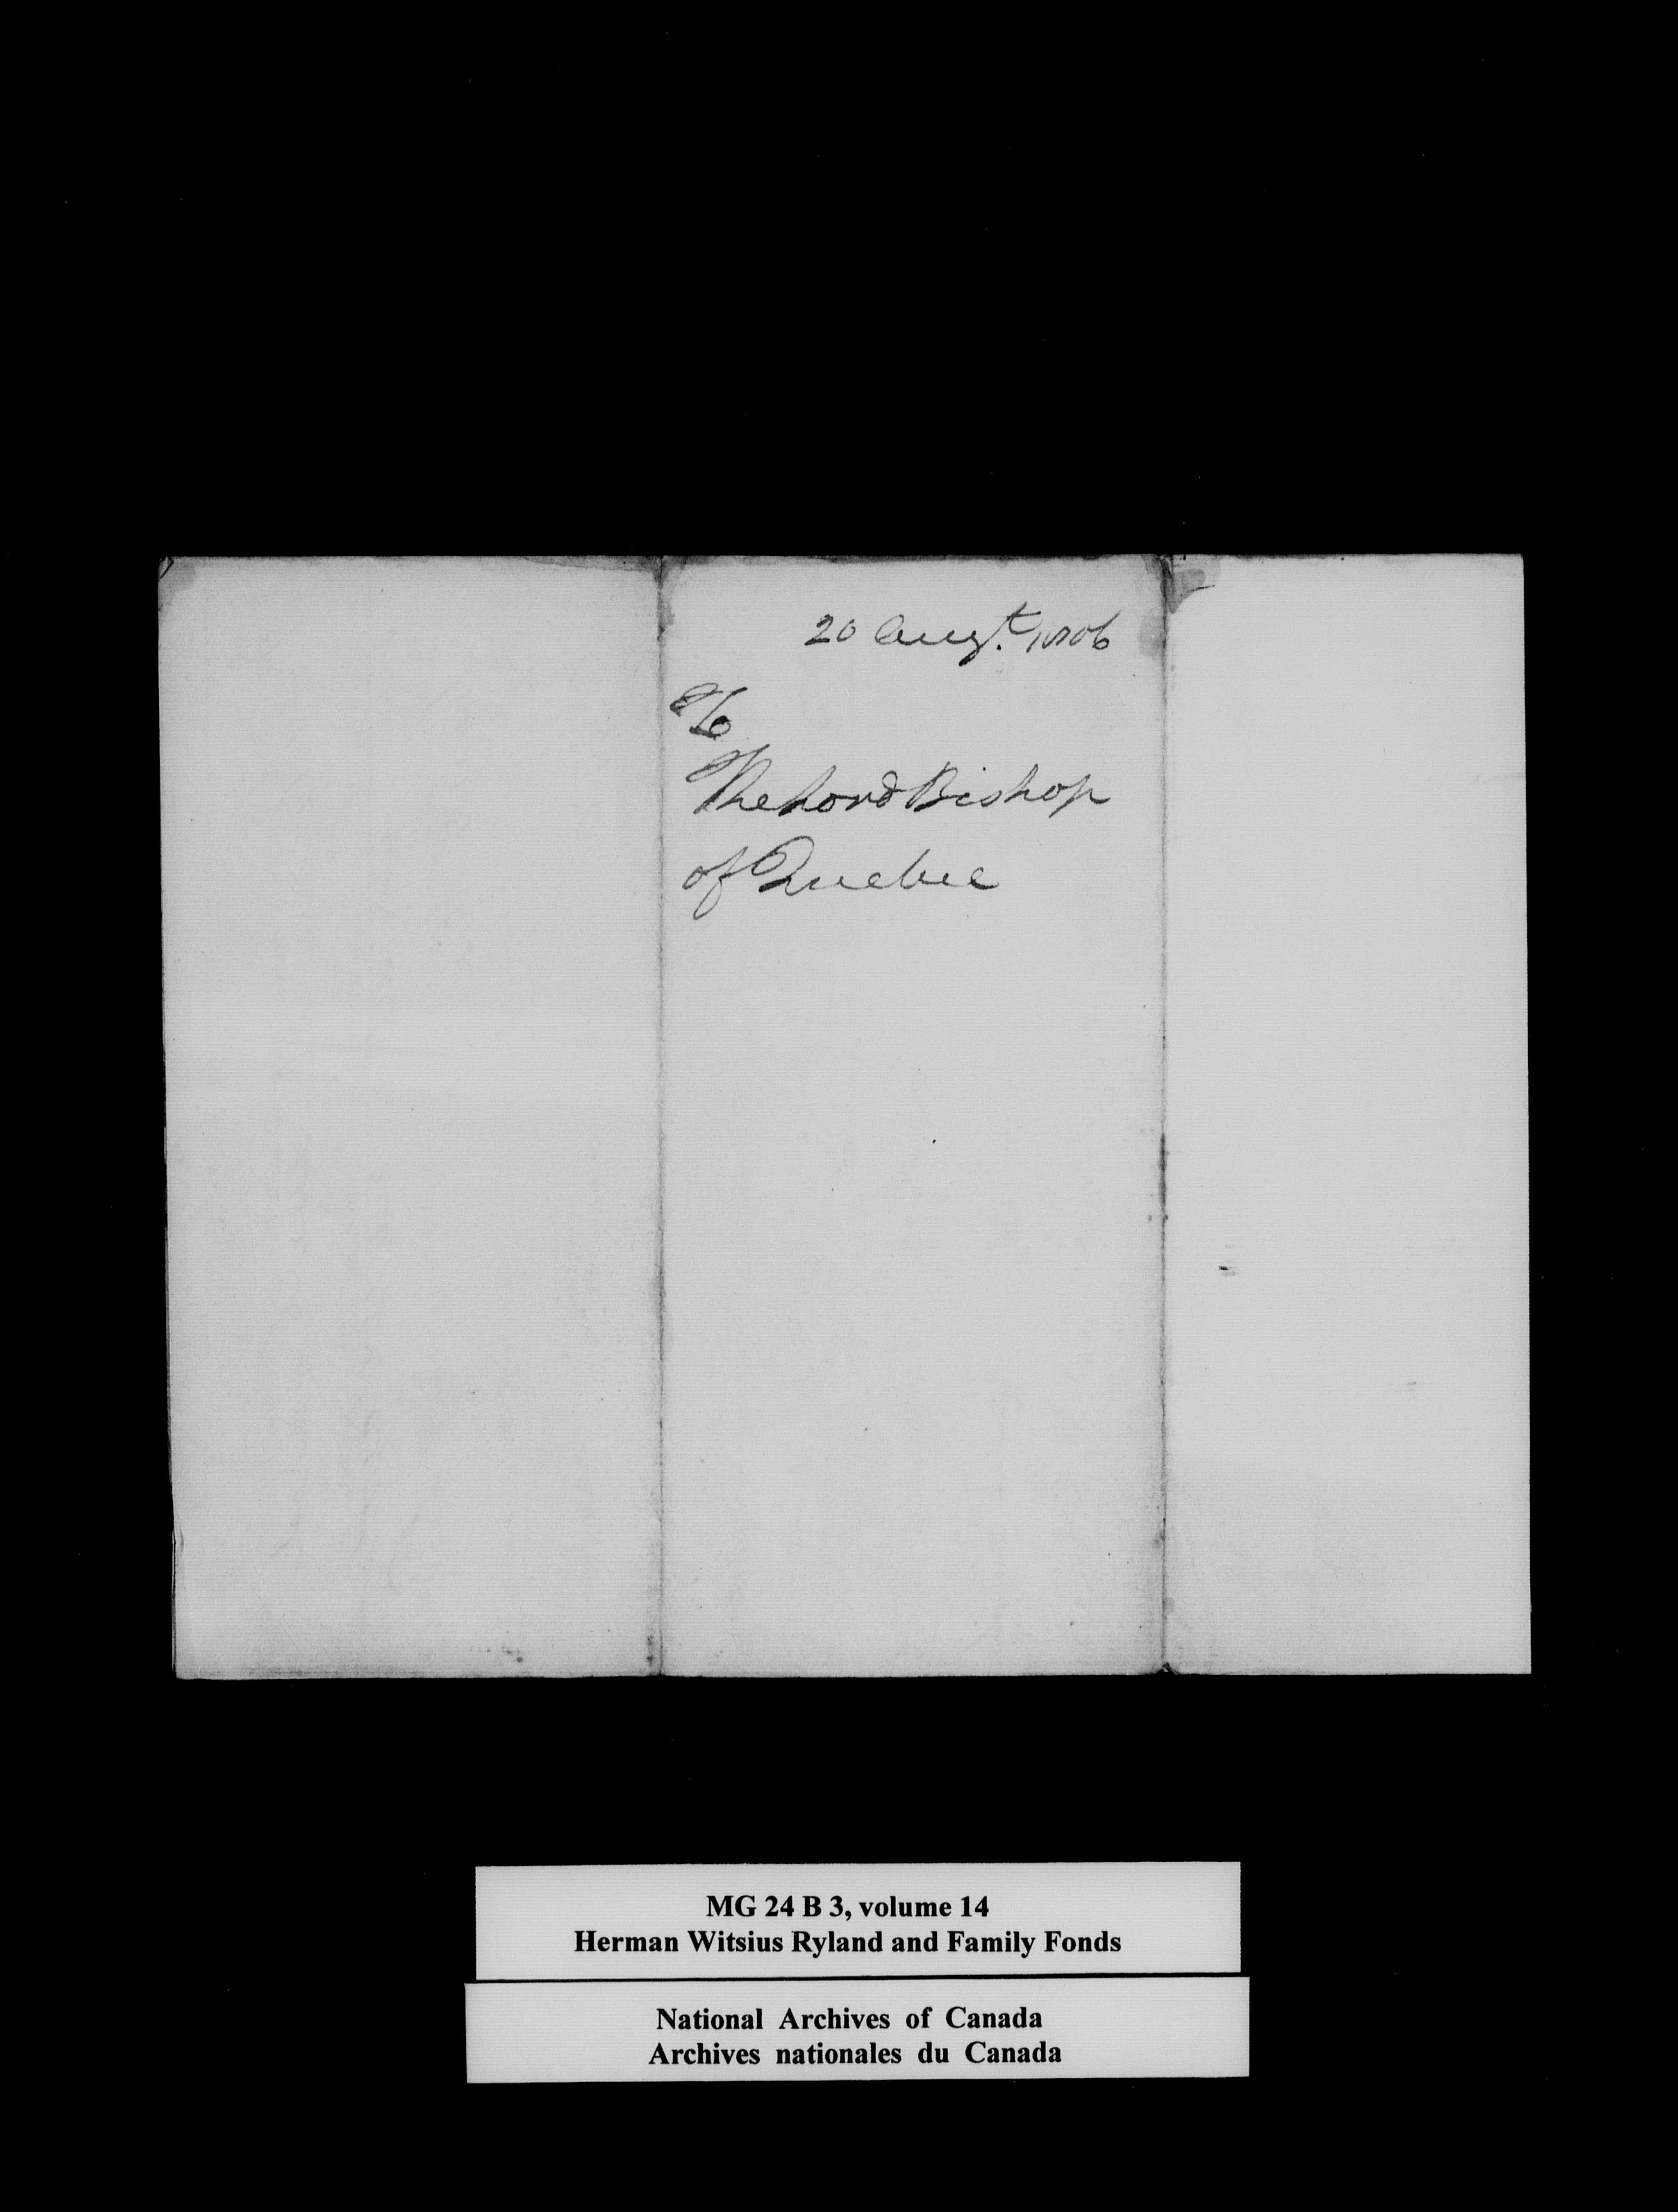 20 Augt. 1806
To
The Lord Bishop
of Quebec
MG 24 B 3, volume 14
Herman Witsius Ryland and Family Fonds
National Archives of Canada
Archives nationales du Canada